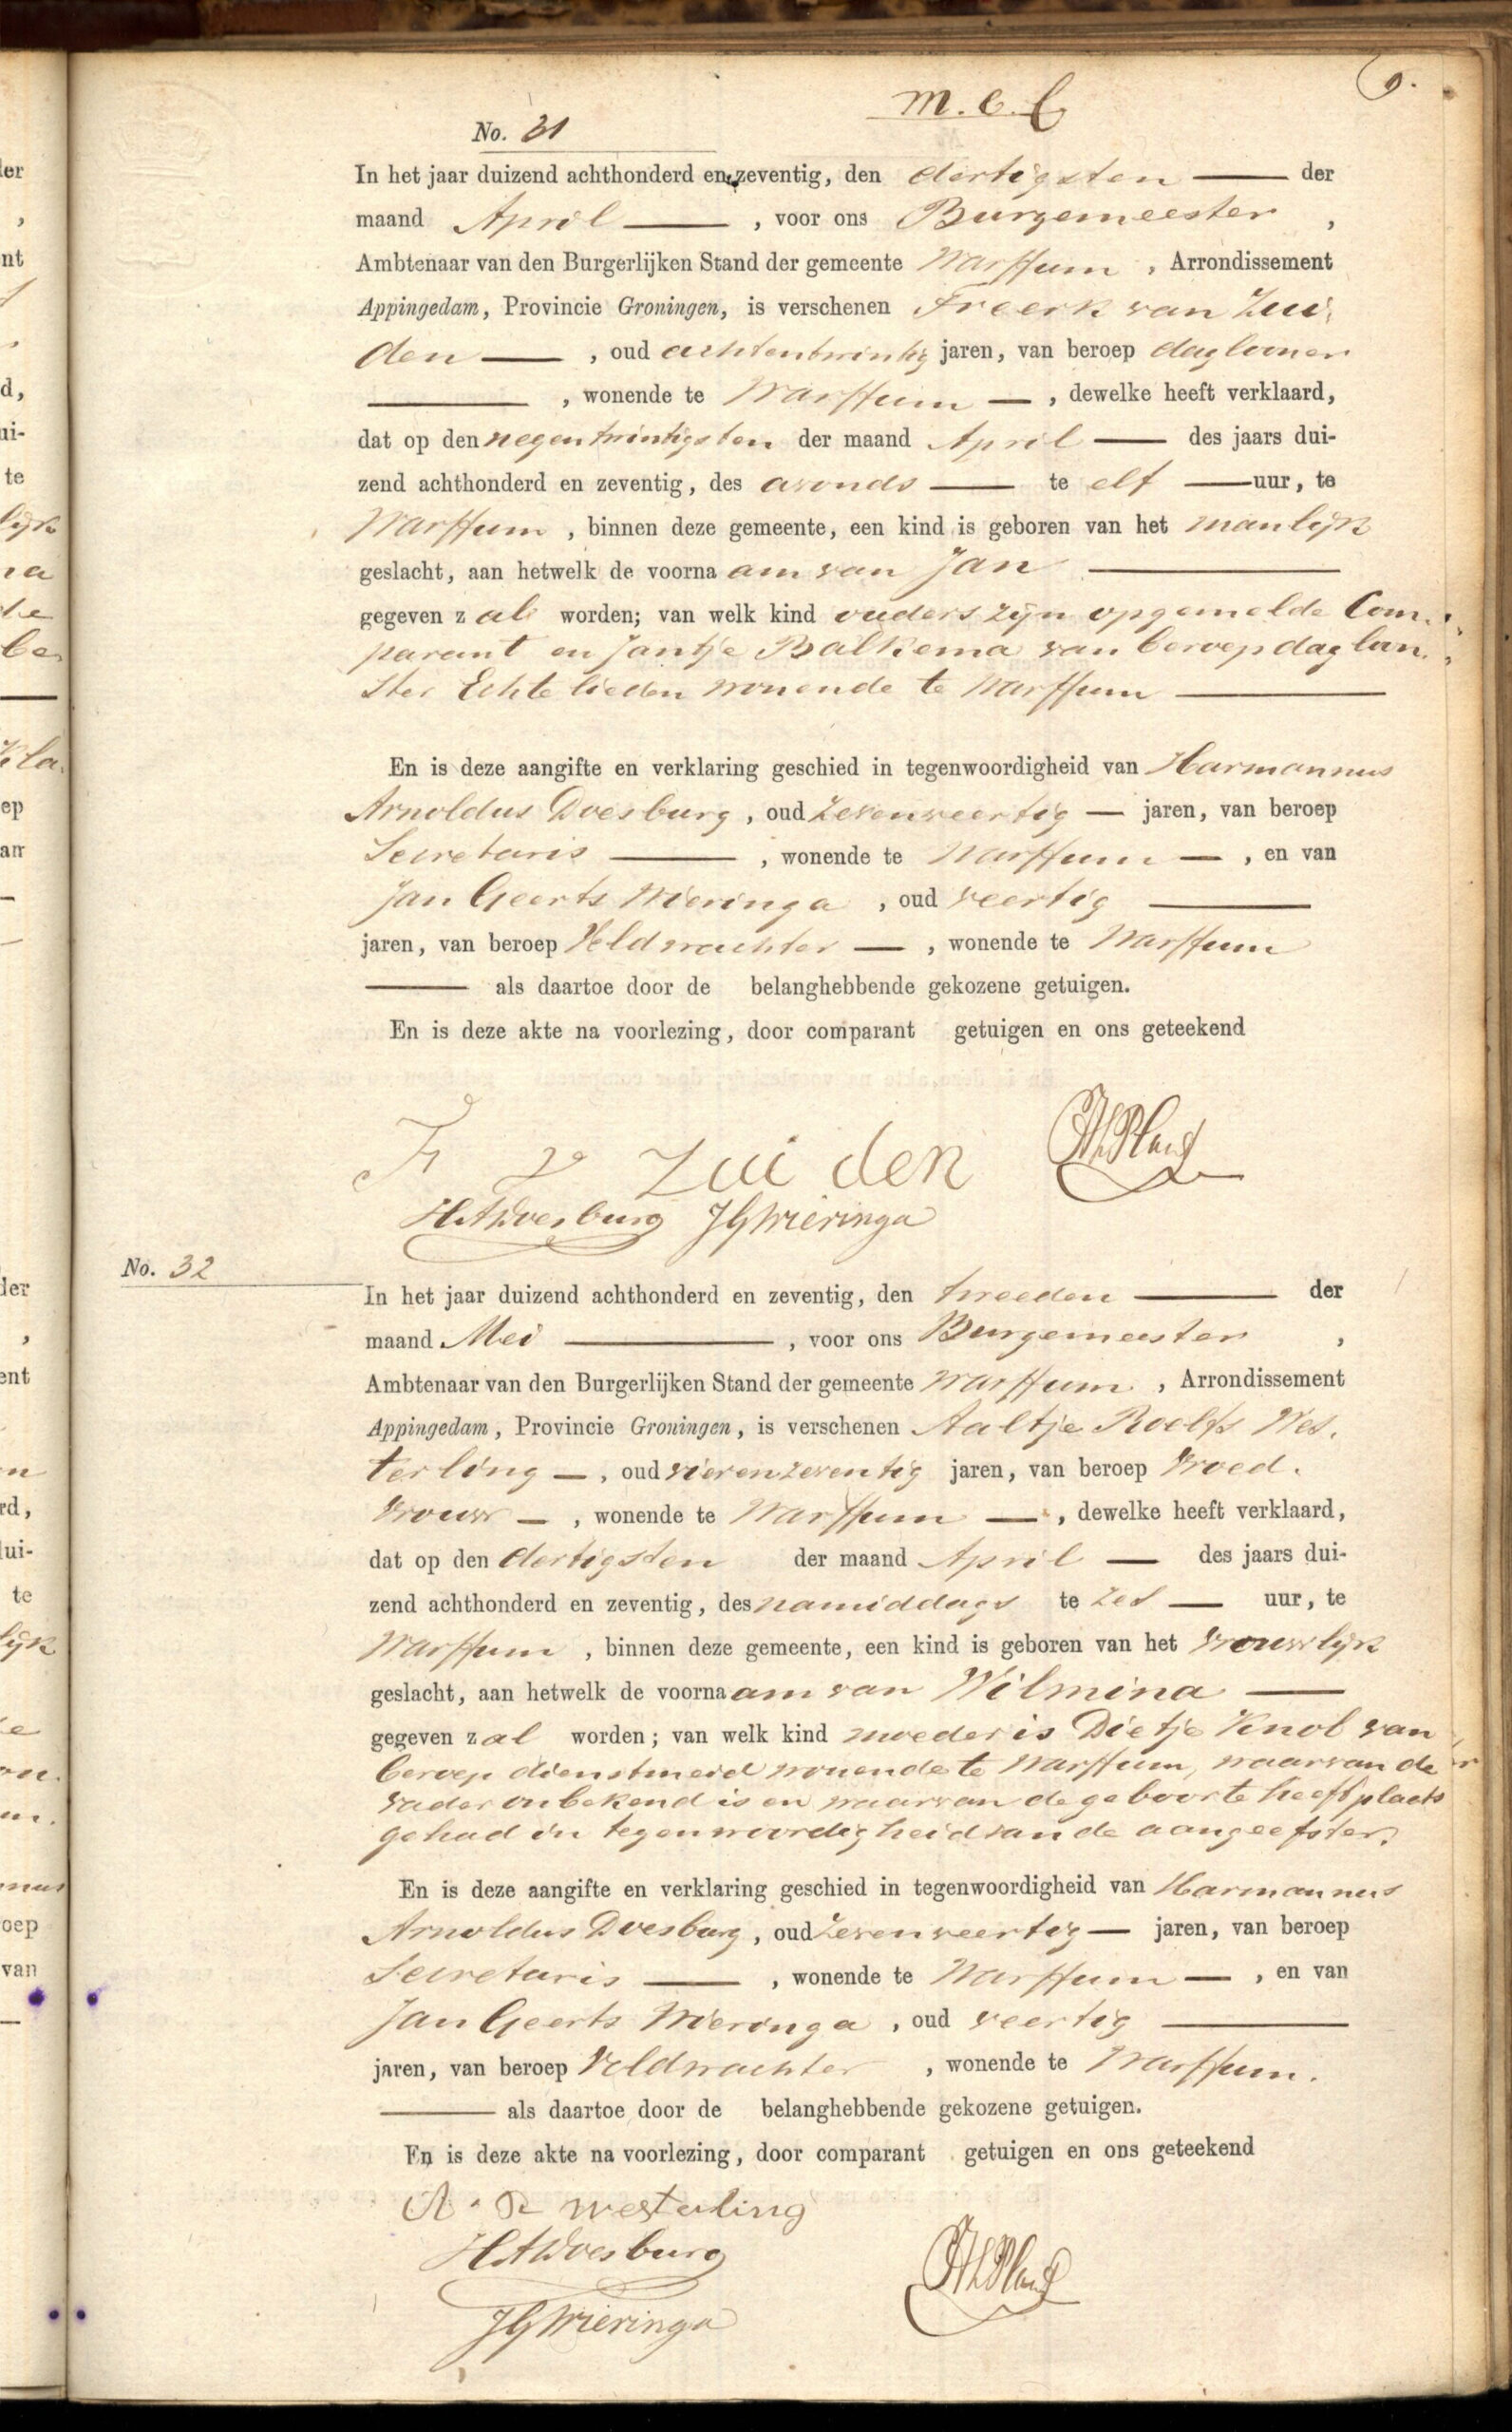 9.
No. 31
In het jaar duizend achthonderd en zeventig, den dertigsten — der
maand April — , voor ons Burgemeester ,
Ambtenaar van den Burgerlijken Stand der gemeente Warffum , Arrondissement
Appingedam, Provincie Groningen, is verschenen Freerk van Zui,
den — , oud achtentwintig jaren, van beroep daglooner
— , wonende te Warffum — , dewelke heeft verklaard,
dat op den negentwintigsten der maand April — des jaars dui-
zend achthonderd en zeventig, des avonds — te elf — uur, te
Warffum , binnen deze gemeente, een kind is geboren van het manlijk
geslacht, aan hetwelk de voornaam van Jan —
gegeven zal worden; van welk kind ouders zijn opgemelde Com,
parant en Jantje Balkema van beroep dagloon,
ster Echtelieden wonende te Warffum —
En is deze aangifte en verklaring geschied in tegenwoordigheid van Harmannus
Arnoldus Doesburg , oud zevenveertig — jaren, van beroep
Secretaris — , wonende te Warffum — , en van
Jan Geerts Wieringa , oud veertig —
jaren, van beroep Veldwachter — , wonende te Warffum
— als daartoe door de belanghebbende gekozene getuigen.
En is deze akte na voorlezing, door comparant getuigen en ons geteekend
F v Zuiden
HADoesburg JGWieringa
No. 32
In het jaar duizend achthonderd en zeventig, den tweeden — der
maand Mei — , voor ons Burgemeester ,
Ambtenaar van den Burgerlijken Stand der gemeente Warffum , Arrondissement
Appingedam, Provincie Groningen, is verschenen Aaltje Roelfs Wes,
terling — , oud vierenzeventig jaren, van beroep Vroed,
vrouw — , wonende te Warffum — , dewelke heeft verklaard,
dat op den dertigsten der maand April — des jaars dui-
zend achthonderd en zeventig, des namiddags te zes — uur, te
Warffum , binnen deze gemeente, een kind is geboren van het vrouwlijk
geslacht, aan hetwelk de voornaam van Wilmina —
gegeven zal worden; van welk kind moeder is Dietje Knol van
beroep dienstmeid wonende te Warffum, waarvan de
vader onbekend is en waarvan de geboorte heeft plaats
gehad in tegenwoordigheid van de aangeefster.
En is deze aangifte en verklaring geschied in tegenwoordigheid van Harmannus
Arnoldus Doesburg , oud zevenveertig — jaren, van beroep
Secretaris — , wonende te Warffum — , en van
Jan Geerts Wieringa , oud veertig —
jaren, van beroep Veldwachter , wonende te Warffum.
— als daartoe door de belanghebbende gekozene getuigen.
En is deze akte na voorlezing, door comparant getuigen en ons geteekend
A. R westerling
HADoesburg
JGWieringa